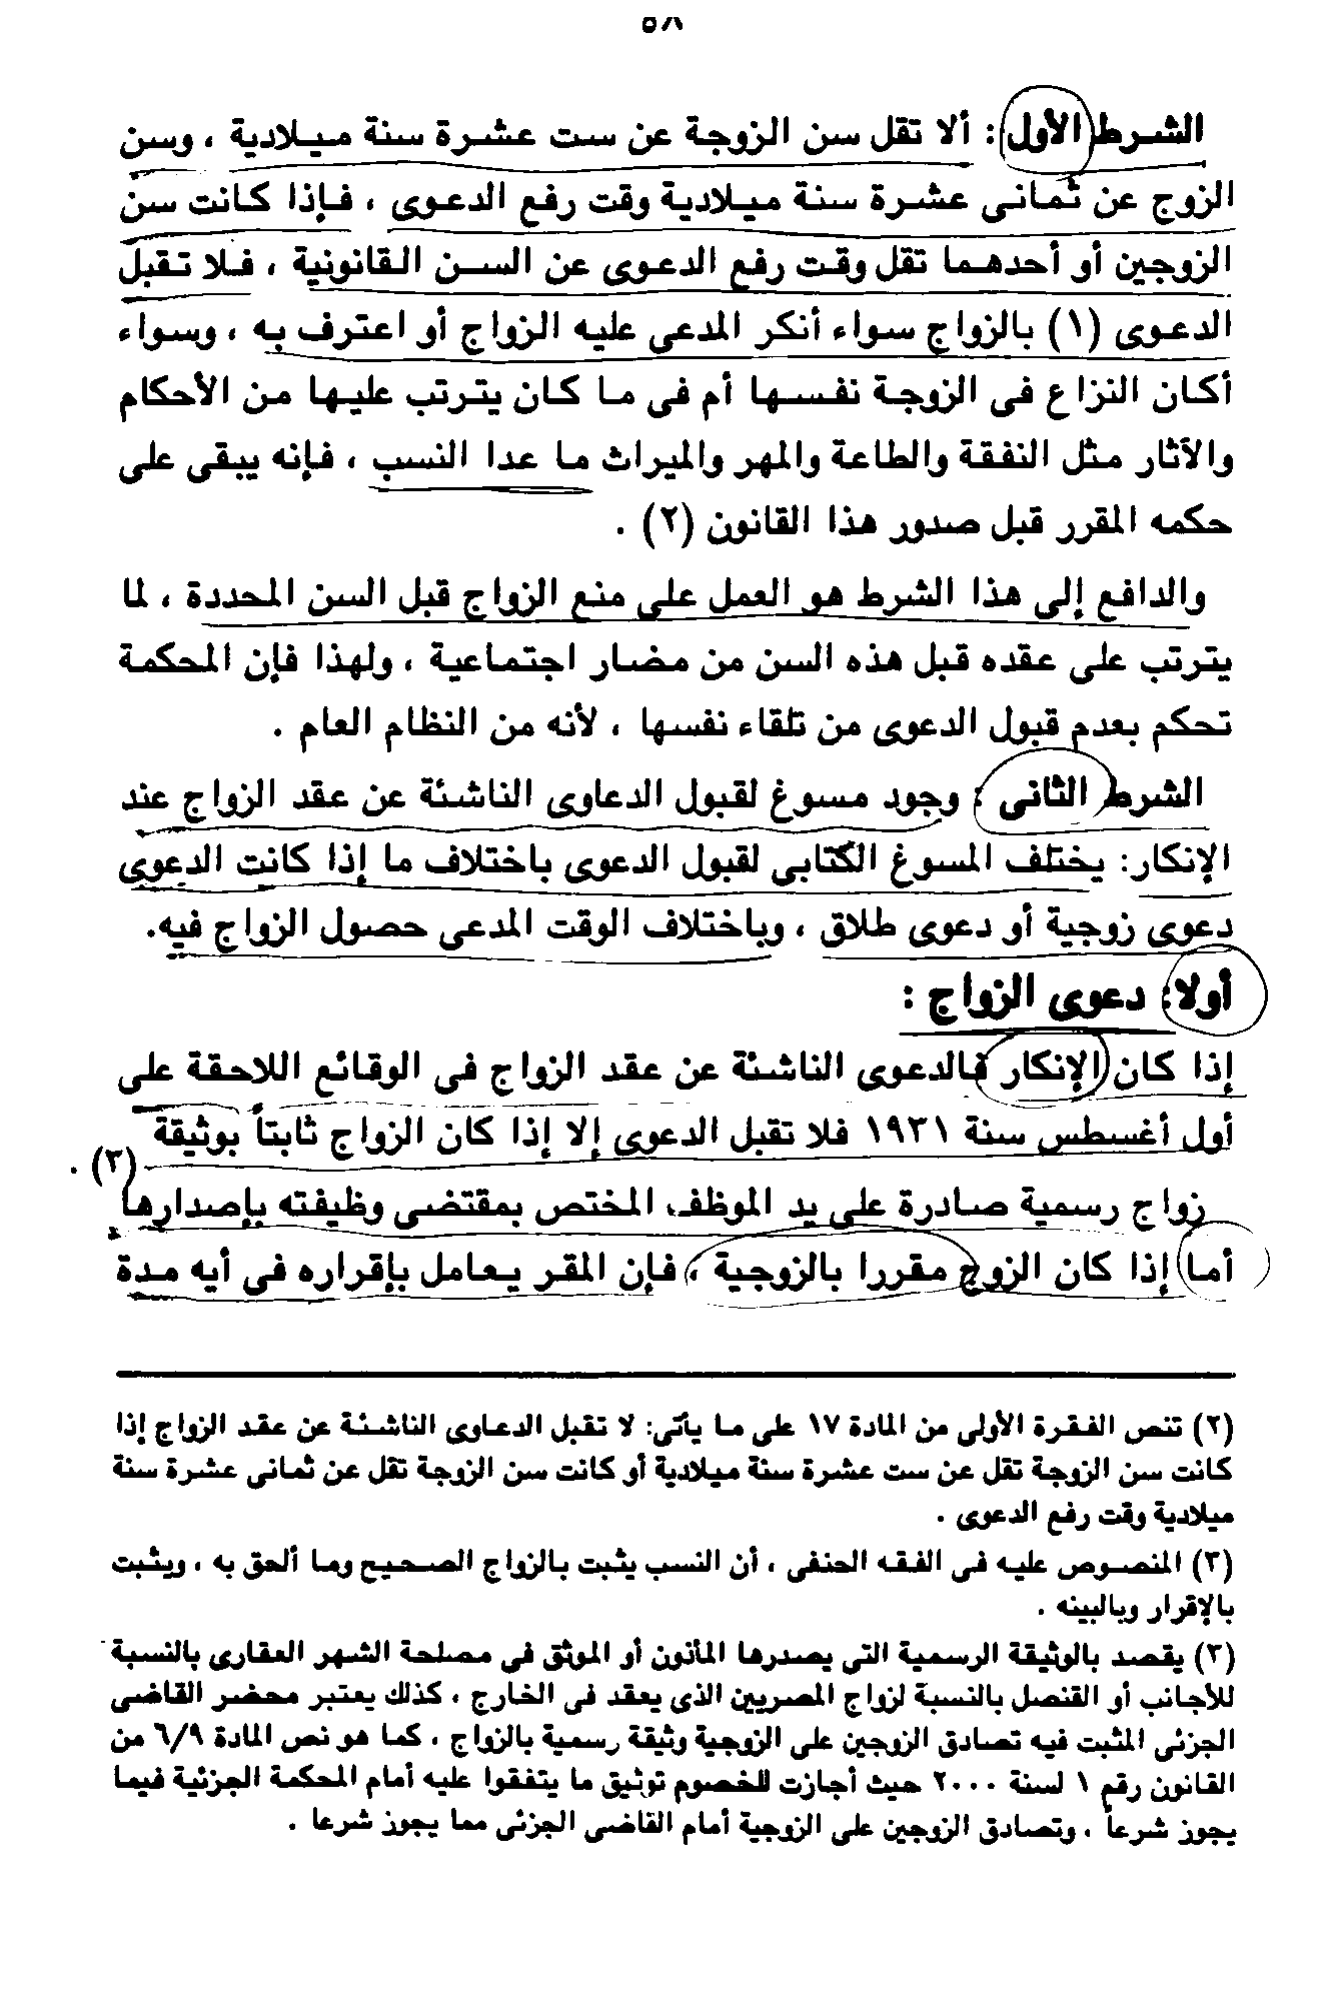 ٥٨
الشرط الأول : ألا تقل سن الزوجة عن ست عشرة سنة ميلادية ، وسن
الزوج عن ثمانى عشرة سنة ميلادية وقت رفع الدعوى ، فإذا كانت سن
الزوجين أو أحدهما تقل وقت رفع الدعوى عن السن القانونية ، فلا تقبل
الدعوى (١) بالزواج سواء أنكر المدعى عليه الزواج أو اعترف به ، وسواء
أكان النزاع فى الزوجة نفسها أم فى ما كان يترتب عليها من الأحكام
والآثار مثل النفقة والطاعة والمهر والميراث ما عدا النسب ، فإنه يبقى على
حكمه المقرر قبل صدور هذا القانون (٢) .
والدافع إلى هذا الشرط هو العمل على منع الزواج قبل السن المحددة ، لما
يترتب على عقده قبل هذه السن من مضار اجتماعية ، ولهذا فإن المحكمة
تحكم بعدم قبول الدعوى من تلقاء نفسها ، لأنه من النظام العام .
الشرط الثانى : وجود مسوغ لقبول الدعاوى الناشئة عن عقد الزواج عند
الإنكار: يختلف المسوغ الكتابي لقبول الدعوى باختلاف ما إذا كانت الدعوى
دعوى زوجية أو دعوى طلاق ، وباختلاف الوقت المدعى حصول الزواج فيه.
أولا: دعوى الزواج :
إذا كان الإنكار فالدعوى الناشئة عن عقد الزواج فى الوقائع اللاحقة على
أول أغسطس سنة ١٩٣١ فلا تقبل الدعوى إلا إذا كان الزواج ثابتاً بوثيقة
زواج رسمية صادرة على يد الموظف المختص بمقتضى وظيفته بإصدارها (٣) .
أما إذا كان الزوج مقررا بالزوجية ، فإن المقر يعامل بإقراره فى أيه مدة
(٢) تنص الفقرة الأولى من المادة ١٧ على ما يأتى: لا تقبل الدعاوى الناشئة عن عقد الزواج إذا
كانت سن الزوجة تقل عن ست عشرة سنة ميلادية أو كانت سن الزوجة تقل عن ثمانى عشرة سنة
ميلادية وقت رفع الدعوى .
(٣) المنصوص عليه فى الفقه الحنفى ، أن النسب يثبت بالزواج الصحيح وما ألحق به ، ويثبت
بالإقرار وبالبينه .
(٣) يقصد بالوثيقة الرسمية التى يصدرها المأذون أو الموثق فى مصلحة الشهر العقارى بالنسبة
للأجانب أو القنصل بالنسبة لزواج المصريين الذى يعقد فى الخارج ، كذلك يعتبر محضر القاضى
الجزئى المثبت فيه تصادق الزوجين على الزوجية وثيقة رسمية بالزواج ، كما هو نص المادة ٦/٩ من
القانون رقم ١ لسنة ٢٠٠٠ حيث أجازت للخصوم توثيق ما يتفقوا عليه أمام المحكمة الجزئية فيما
يجوز شرعاً ، وتصادق الزوجين على الزوجية أمام القاضى الجزئى مما يجوز شرعا .